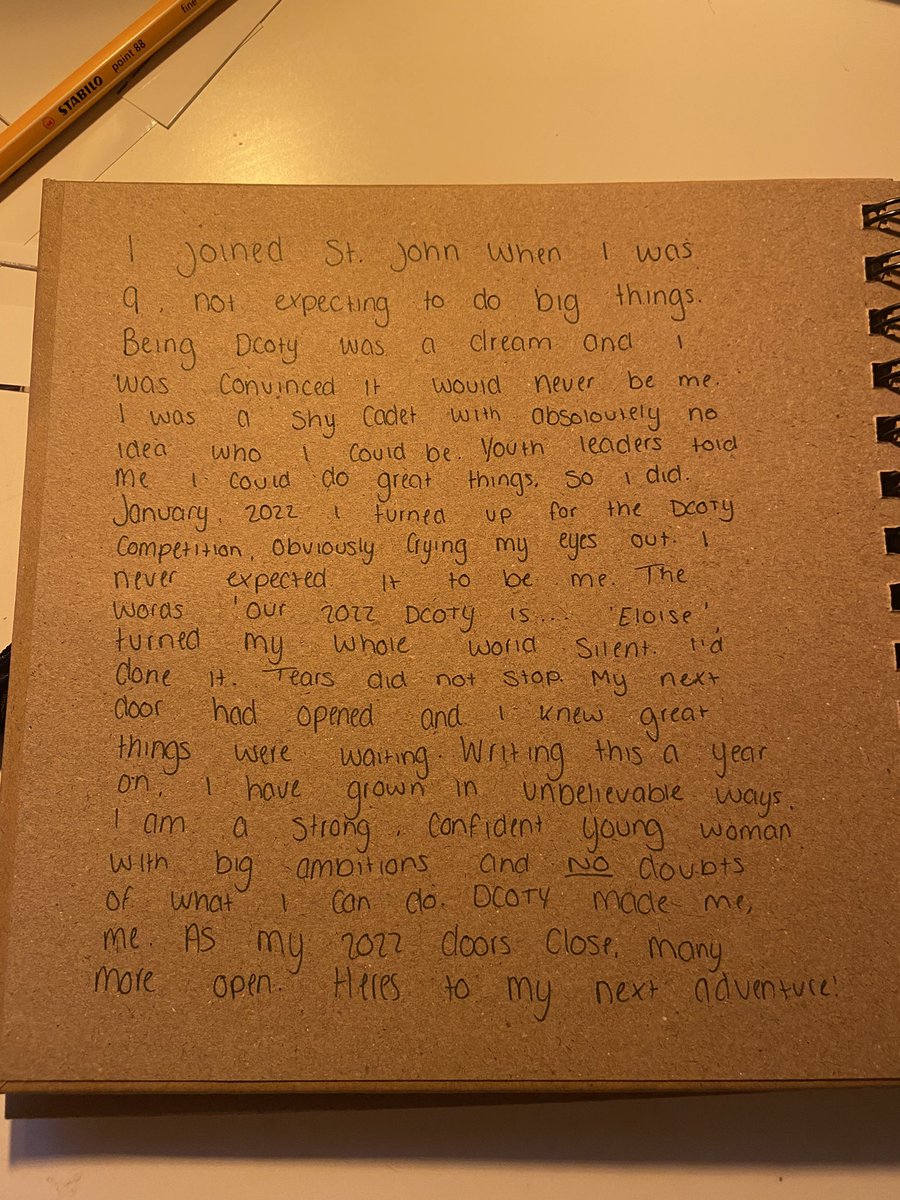 STABILO point 88 fine
I joined St. John when I was
9, not expecting to do big things.
Being Dcoty was a dream and I
was convinced it would never be me.
I was a shy cadet with absoloutely no
idea who I could be. Youth leaders told
me I could do great things. So I did.
January, 2022 I turned up for the DCOTY
competition, obviously crying my eyes out. I
never expected it to be me. The
words 'our 2022 DCOTY is.... 'Eloise',
turned my whole world silent. I'd
done it. Tears did not stop. My next
door had opened and I knew great
things were waiting. Writing this a year
on, I have grown in unbelievable ways.
I am a strong, confident young woman
with big ambitions and NO doubts
of what I can do. DCOTY made me,
me. As my 2022 doors close, many
more open. Heres to my next adventure!